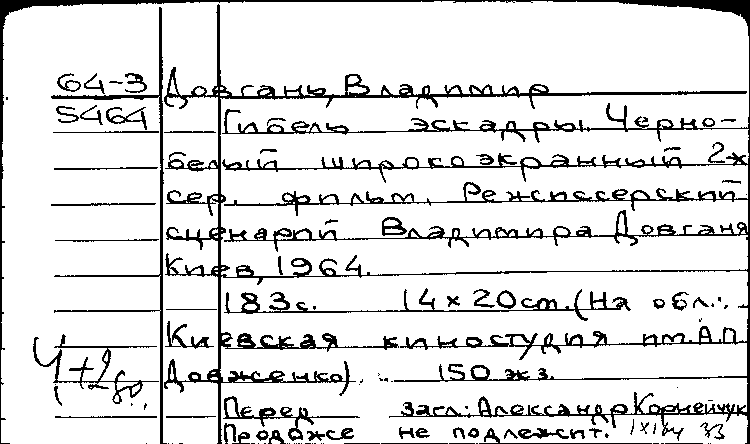 64-3 Довгань, Владимир
5464 Гибель эскадры. Черно-
белый широкоэкранный 2-х
сер. фильм. Режиссерский
сценарий Владимира Довганя
Киев, 1964.
183с. 14 × 20 см. (На обл.:
Киевская киностудия им. А.П.
Довженко). 150 экз.
Перед загл.: Александр Корнейчук
Продаже не подлежит.